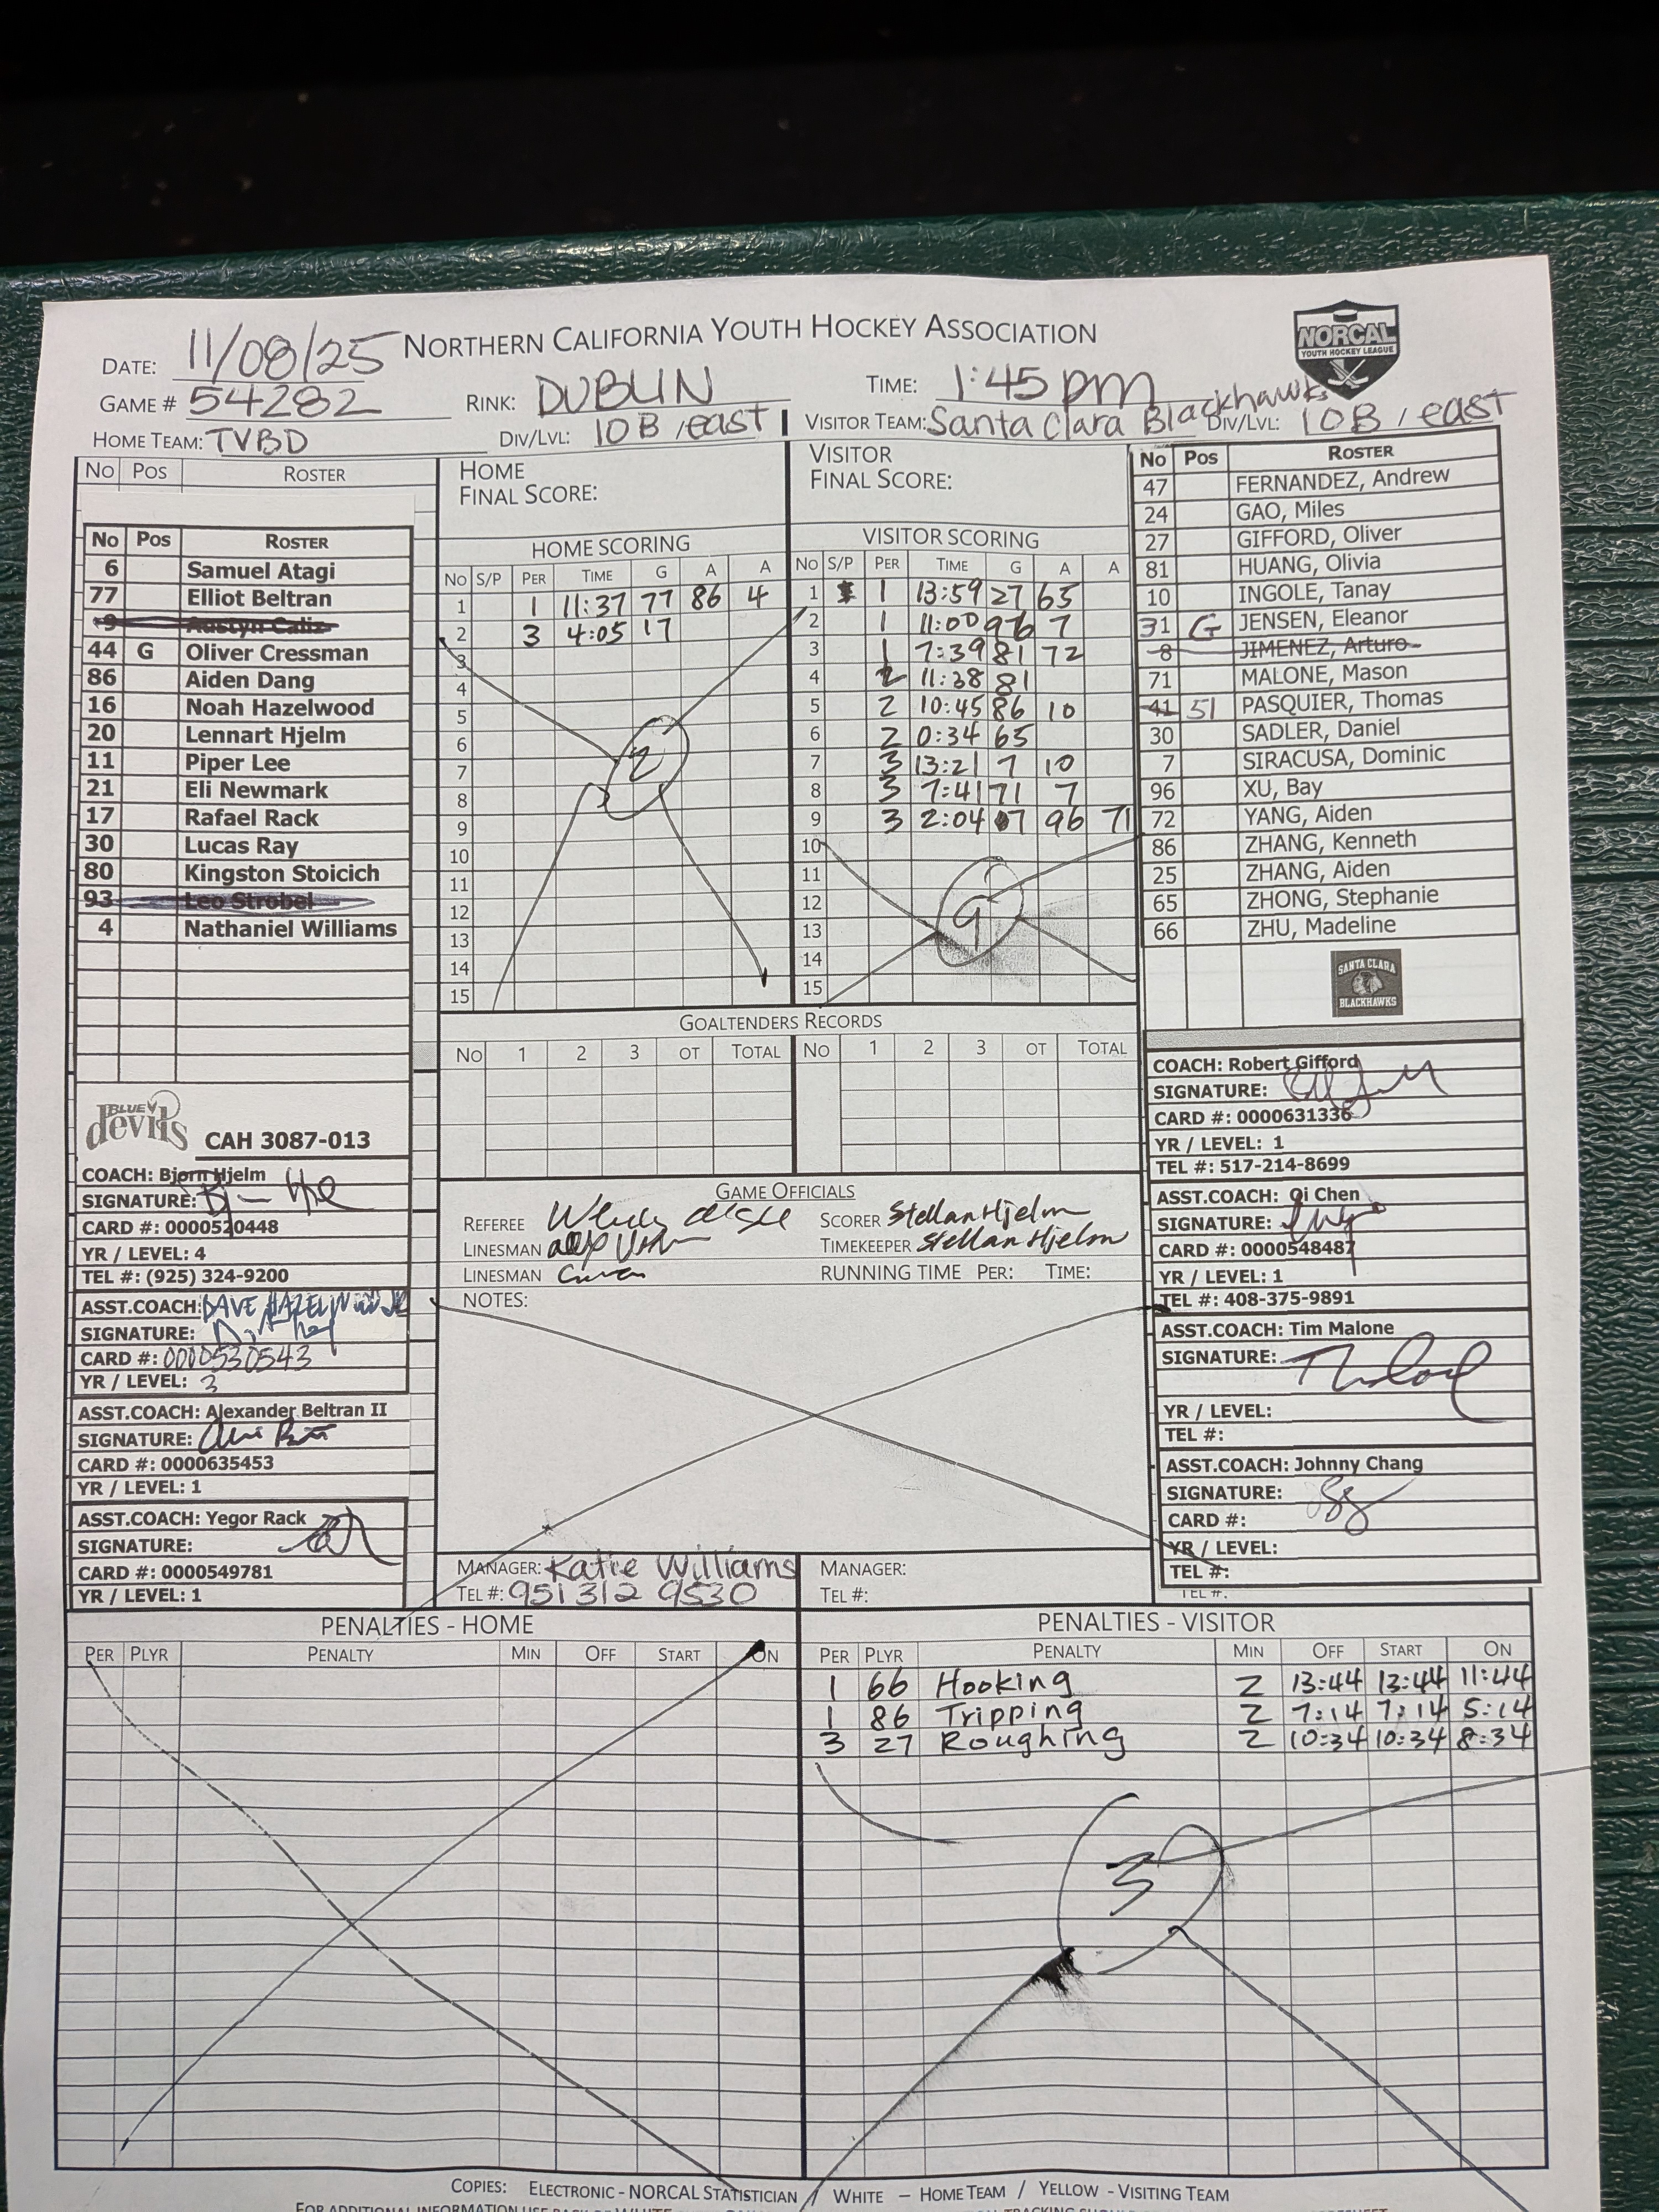 NORTHERN CALIFORNIA YOUTH HOCKEY ASSOCIATION
NORCAL
YOUTH HOCKEY LEAGUE
DATE: 11/08/25
GAME # 54282 RINK: DUBLIN TIME: 1:45 pm
HOME TEAM: TVBD DIV/LVL: 10B / east VISITOR TEAM: Santa Clara Blackhawks DIV/LVL: 10B / east
NO POS ROSTER
NO POS ROSTER
6 Samuel Atagi
77 Elliot Beltran
9 Austyn Caliz
44 G Oliver Cressman
86 Aiden Dang
16 Noah Hazelwood
20 Lennart Hjelm
11 Piper Lee
21 Eli Newmark
17 Rafael Rack
30 Lucas Ray
80 Kingston Stoicich
93 Leo Strobel
4 Nathaniel Williams
BLUE devils CAH 3087-013
COACH: Bjorn Hjelm
SIGNATURE:
CARD #: 0000520448
YR / LEVEL: 4
TEL #: (925) 324-9200
ASST.COACH: DAVE HAZELWOOD JR
SIGNATURE:
CARD #: 0000530543
YR / LEVEL: 3
ASST.COACH: Alexander Beltran II
SIGNATURE:
CARD #: 0000635453
YR / LEVEL: 1
ASST.COACH: Yegor Rack
SIGNATURE:
CARD #: 0000549781
YR / LEVEL: 1
HOME
FINAL SCORE:
HOME SCORING
NO S/P PER TIME G A A
1 1 11:37 77 86 4
2 3 4:05 17
3
4
5
6
7
8
9
10
11
12
13
14
15
2
VISITOR
FINAL SCORE:
VISITOR SCORING
NO S/P PER TIME G A A
1 1 13:59 27 65
2 1 11:00 96 7
3 1 7:39 81 72
4 2 11:38 81
5 2 10:45 86 10
6 2 0:34 65
7 3 13:21 7 10
8 3 7:41 71 7
9 3 2:04 7 96 71
10
11
12
13
14
15
9
NO POS ROSTER
47 FERNANDEZ, Andrew
24 GAO, Miles
27 GIFFORD, Oliver
81 HUANG, Olivia
10 INGOLE, Tanay
31 G JENSEN, Eleanor
8 JIMENEZ, Arturo
71 MALONE, Mason
41 51 PASQUIER, Thomas
30 SADLER, Daniel
7 SIRACUSA, Dominic
96 XU, Bay
72 YANG, Aiden
86 ZHANG, Kenneth
25 ZHANG, Aiden
65 ZHONG, Stephanie
66 ZHU, Madeline
SANTA CLARA
BLACKHAWKS
COACH: Robert Gifford
SIGNATURE:
CARD #: 0000631336
YR / LEVEL: 1
TEL #: 517-214-8699
ASST.COACH: Qi Chen
SIGNATURE:
CARD #: 0000548487
YR / LEVEL: 1
TEL #: 408-375-9891
ASST.COACH: Tim Malone
SIGNATURE:
YR / LEVEL:
TEL #:
ASST.COACH: Johnny Chang
SIGNATURE:
CARD #:
YR / LEVEL:
TEL #:
TEL #:
GOALTENDERS RECORDS
NO 1 2 3 OT TOTAL NO 1 2 3 OT TOTAL
GAME OFFICIALS
REFEREE SCORER Stellan Hjelm
LINESMAN TIMEKEEPER Stellan Hjelm
LINESMAN RUNNING TIME PER: TIME:
NOTES:
MANAGER: Katie Williams MANAGER:
TEL #: 951 312 9530 TEL #:
PENALTIES - HOME
PER PLYR PENALTY MIN OFF START ON
PENALTIES - VISITOR
PER PLYR PENALTY MIN OFF START ON
1 66 Hooking 2 13:44 13:44 11:44
1 86 Tripping 2 7:14 7:14 5:14
3 27 Roughing 2 10:34 10:34 8:34
3
COPIES: ELECTRONIC - NORCAL STATISTICIAN / WHITE – HOME TEAM / YELLOW - VISITING TEAM